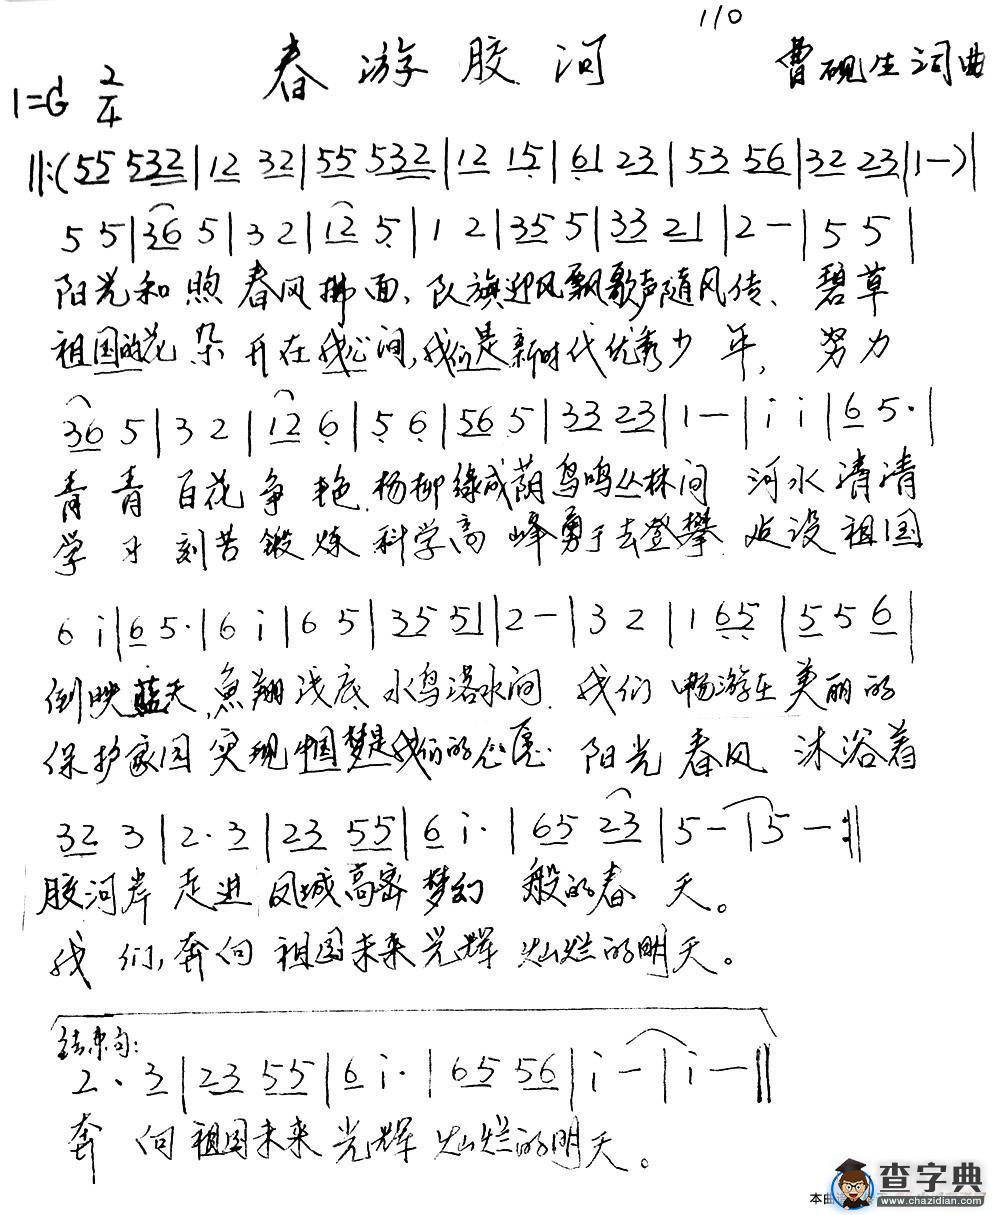 110
春游胶河
曹砚生词曲
1=G 2/4
‖:(55 532|12 32|55 532|12 15|61 23|53 56|32 23|1—)|
5 5|36 5|3 2|12 5|1 2|35 5|33 21|2—|5 5|
阳光和煦 春风拂面、队旗迎风飘歌声随风传、碧草
祖国的花朵 开在我心间,我们是新时代优秀少年, 努力
36 5|3 2|12 6|5 6|56 5|33 23|1—|i i|6 5·|
青青 百花争艳 杨柳绿成荫鸟鸣丛林间 河水清清
学习 刻苦锻炼 科学高峰勇于去登攀 建设祖国
6 i|6 5·|6 i|6 5|35 51|2—|3 2|1 65|5 5 6|
倒映蓝天,鱼翔浅底 水鸟落水间. 我们 畅游在 美丽的
保护家园 实现中国梦是我们的心愿 阳光 春风 沐浴着
32 3|2·3|23 55|6 i·|65 23|5—|5—:‖
胶河岸 走进 凤城高密 梦幻 般的春 天。
我们,奔向 祖国未来 光辉 灿烂的明天。
结束句:
2·3|23 55|6 i·|65 56|i—|i—‖
奔向 祖国未来 光辉 灿烂的明天。
查字典
www.chazidian.com
本曲